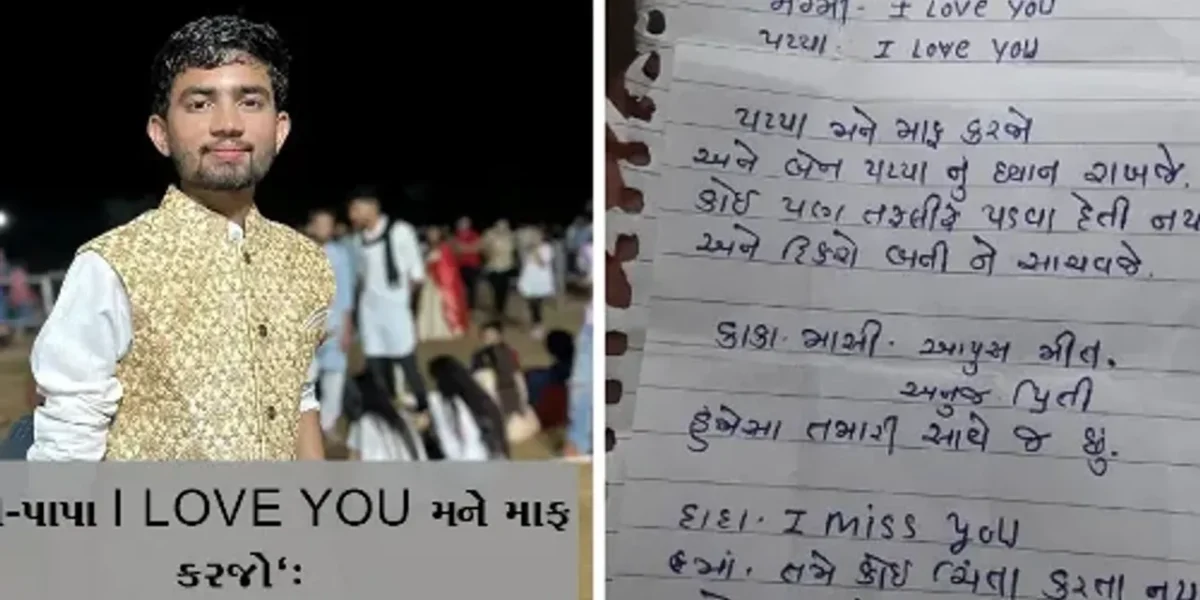 -પાપા I LOVE YOU મને માફ
કરજો':
મમ્મી. I LOVE YOU
પપ્પા. I LOVE YOU
પપ્પા મને માફ કરજો
અને બેન પપ્પા નું ધ્યાન રાખજે.
કોઈ પણ તકલીફ પડવા દેતી નય
અને દિકરો બની ને સાચવજે.
કાકા. માસી. આયુસ મીત.
અનુજ પ્રિતી
હુંમેસા તમારી સાથે જ છું.
દાદા. I MISS YOU
તમે કોઇ ચિંતા કરતા નય